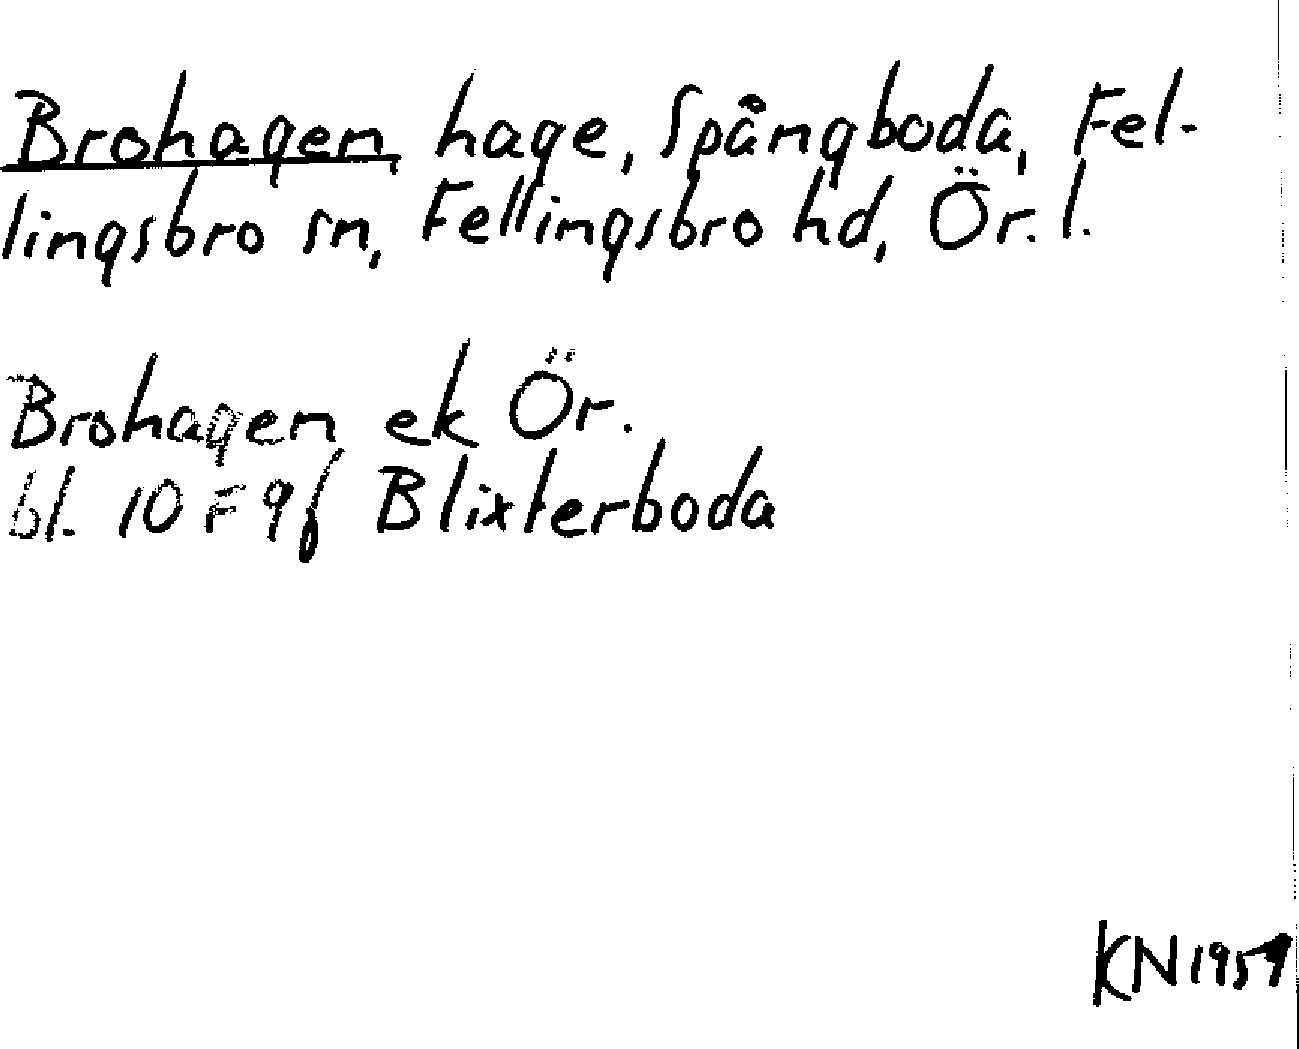 Brohagen, hage, Spångboda, Fel-
lingsbro sn, Fellingsbro hd, Ör. l.
Brohagen ek Ör.
bl. 10 F 9 f Blixterboda
KN 1959